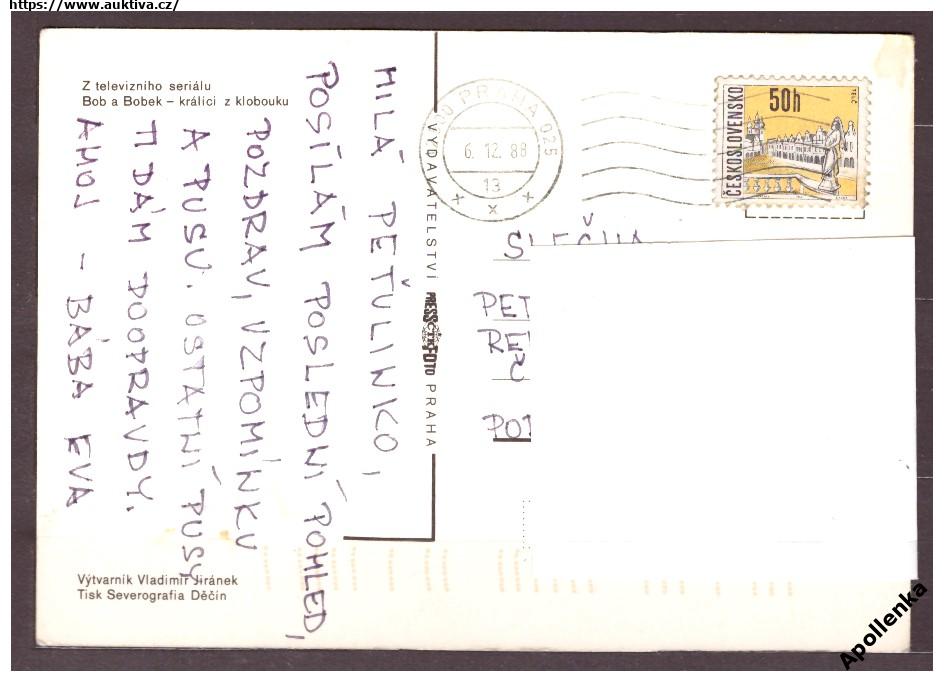 https://www.auktiva.cz/
Z televizního seriálu
Bob a Bobek – králíci z klobouku
MILÁ PEŤULINKO,
POSÍLÁM POSLEDNÍ POHLED,
POZDRAV, VZPOMÍNKU
A PUSU. OSTATNÍ PUSY
TI DÁM DOOPRAVDY.
AHOJ – BÁBA EVA
Výtvarník Vladimír Jiránek
Tisk Severografia Děčín
VYDAVATELSTVÍ PRESSFOTO PRAHA
ČTK
PRAHA 025
6. 12. 88
13
ČESKOSLOVENSKO
50h
TELČ
PET
RE
Č
POT
Apollenka